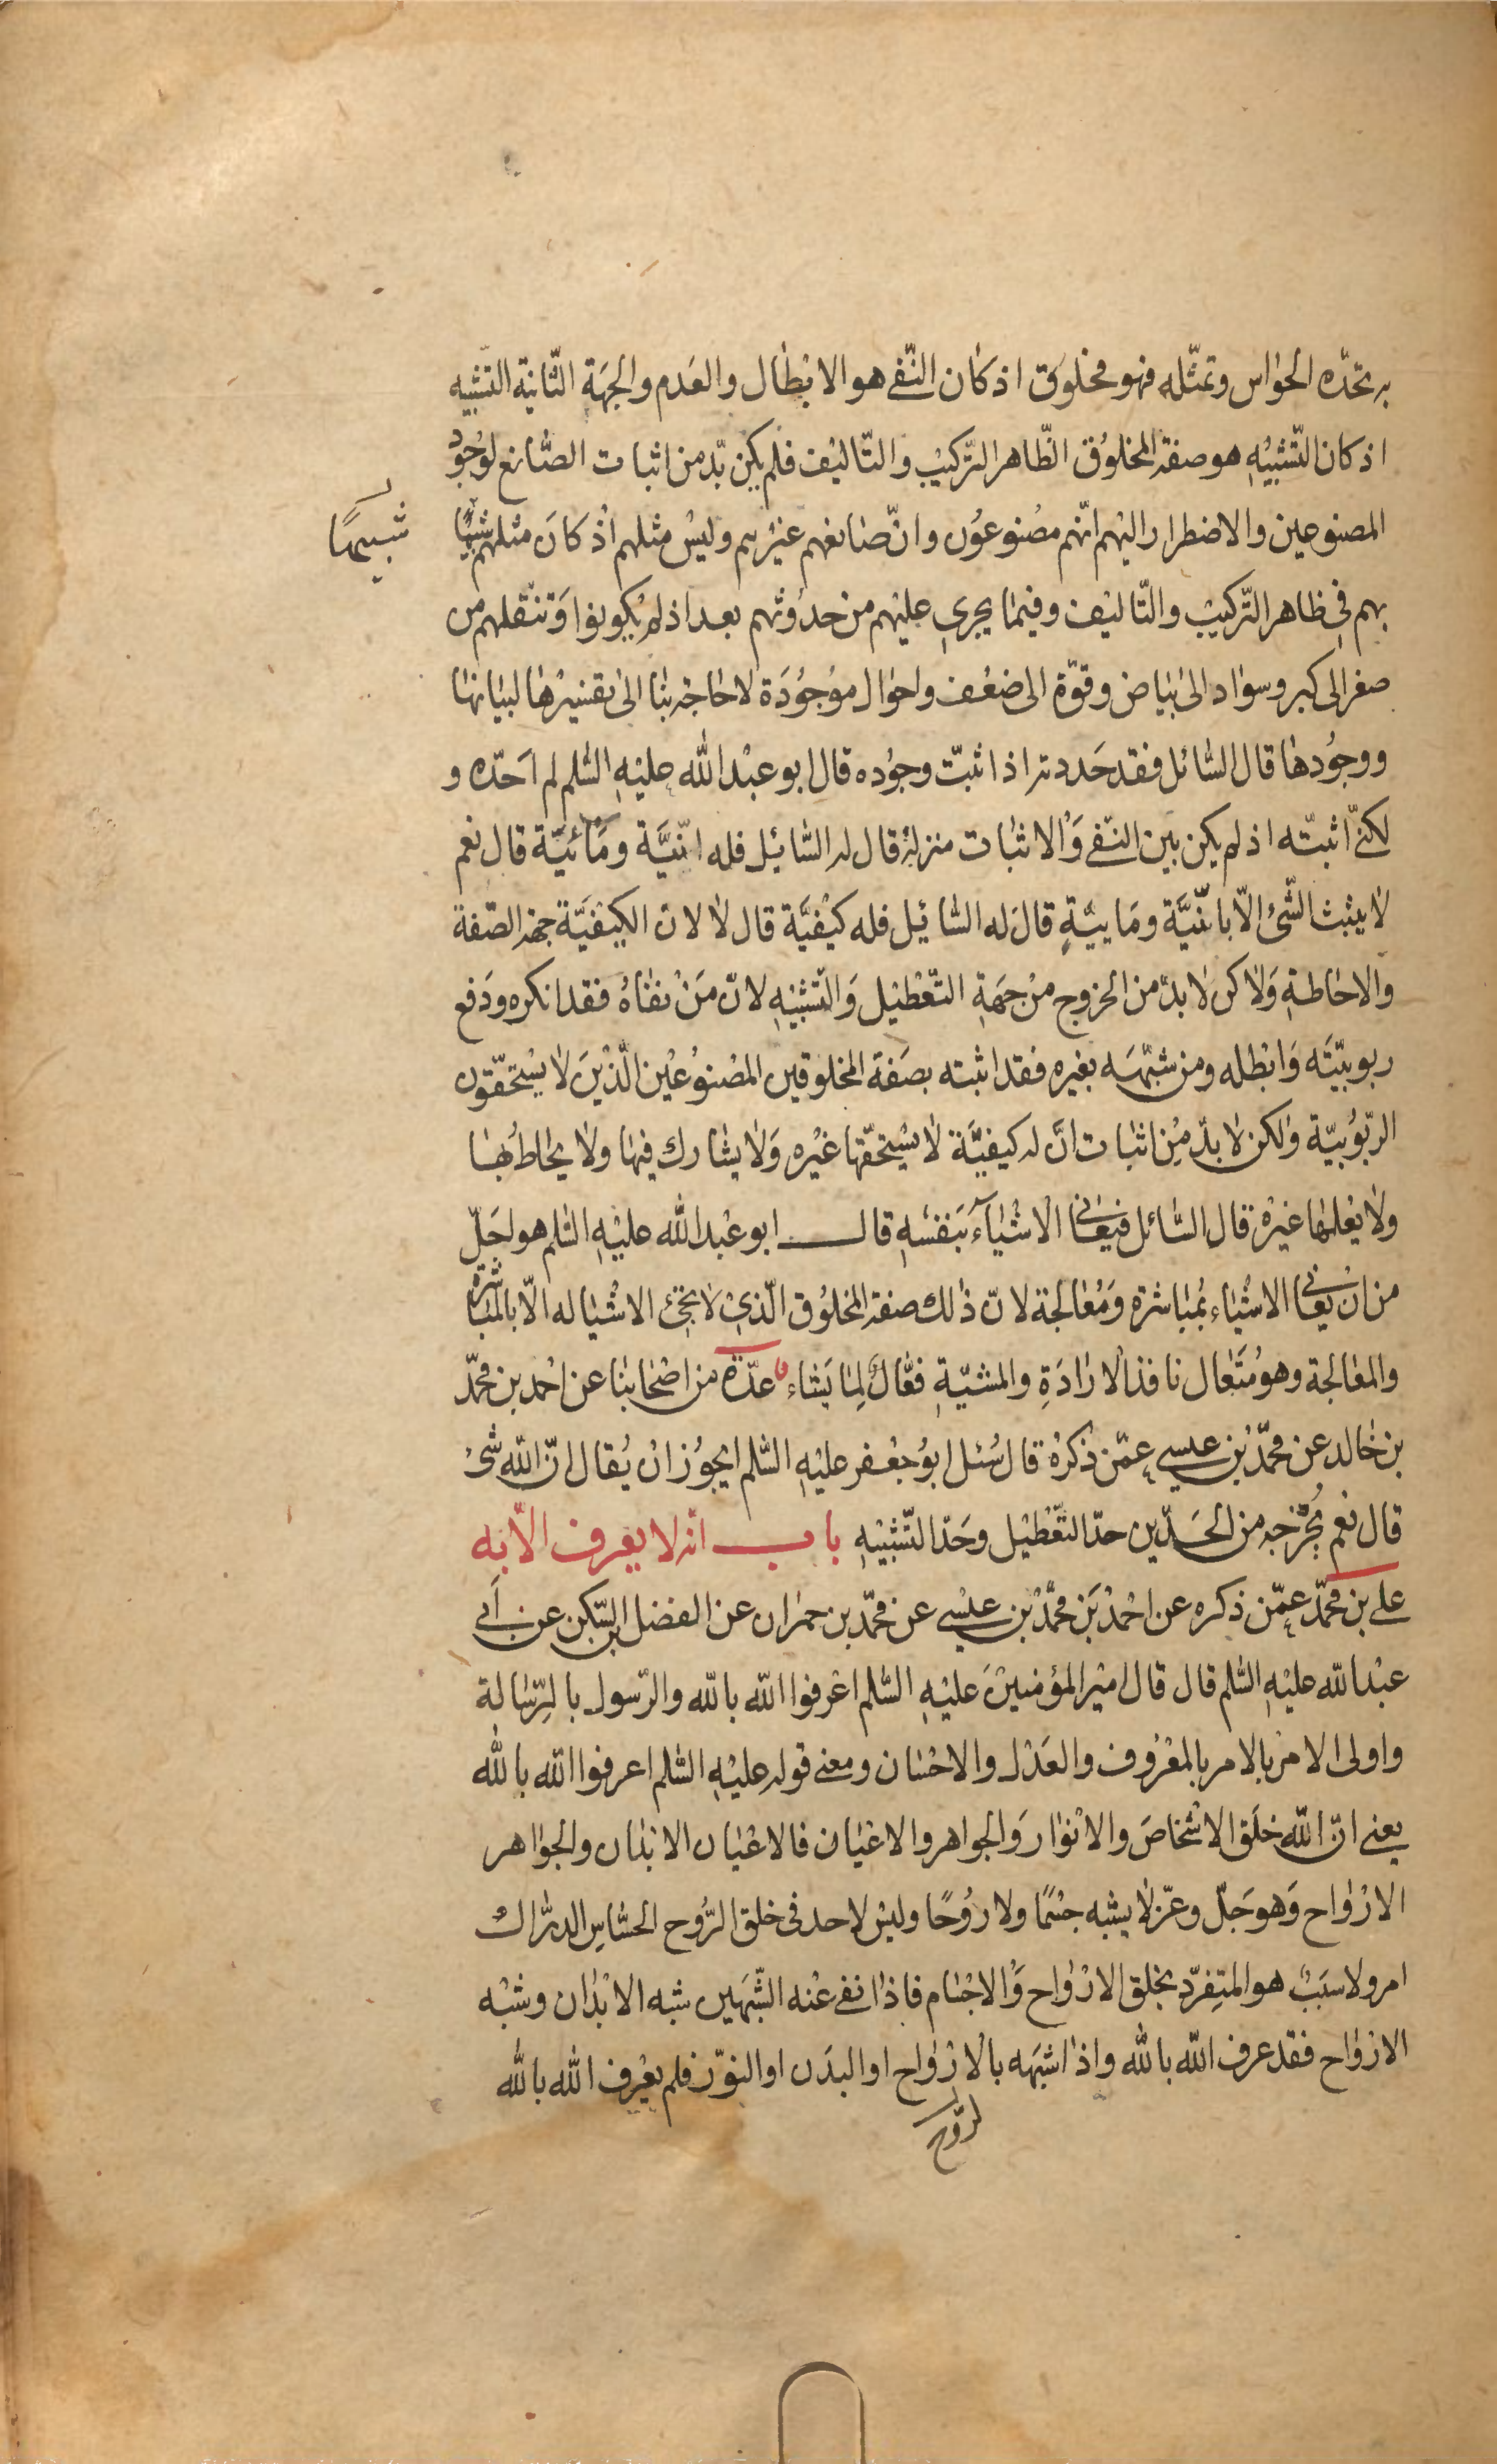 به تحدّه الحواس وتمثّله فهو مخلوق اذ كان النّفى هو الابطال والعدم والجهة الثّانية التّشبيه
اذ كان التّشبيه هو صفة المخلوق الظّاهر التّركيب والتّاليف فلم يكن بدّ من اثبات الصّانع لوجود
المصنوعين والاضطرار اليهم انّهم مصنوعون وانّ صانعهم غيرهم وليس مثلهم اذ كان مثلهم شبيها
شبيهًا
بهم فى ظاهر التّركيب والتّاليف وفيما يجرى عليهم من حدوثهم بعد اذ لم يكونوا وتنقلهم من
صغر الى كبر وسواد الى بياض وقوّة الى ضعف واحوال موجودة لا حاجة بنا الى تفسيرها لبيانها
ووجودها قال السّائل فقد حددته اذ اثبتّ وجوده قال ابو عبد الله عليه السّلم لم احدّه و
لكنّى اثبتّه اذ لم يكن بين النّفى والاثبات منزلة قال له السّائل فله انّيّة ومائيّة قال نعم
لا يثبت الشّئ الّا بانّيّة ومايّية قال له السّائل فله كيفيّة قال لا لانّ الكيفيّة جهة الصّفة
والاحاطة ولاكن لا بدّ من الخروج من جهة التّعطيل والتّشبيه لانّ من نفاه فقد انكره ودفع
ربوبيّته وابطله ومن شبّهه بغيره فقد اثبته بصفة المخلوقين المصنوعين الّذين لا يستحقّون
الرّبوبيّة ولكن لا بدّ من اثبات انّ له كيفيّة لا يستحقّها غيره ولا يشارك فيها ولا يحاط بها
ولا يعلمها غيره قال السّائل فيعانى الاشياء بنفسه قال ابو عبد الله عليه السّلم هو اجلّ
من ان يعانى الاشياء بمباشرة ومعالجة لانّ ذالك صفة المخلوق الّذى لا تجئ الاشيا له الّا بالمباشرة
والمعالجة وهو متعال نافذ الارادة والمشيّة فعّال لما يشاء عدّة من اصحابنا عن احمد بن محمّد
بن خالد عن محمّد بن عيسى عمّن ذكره قال سُئل ابو جعفر عليه السّلم ايجوز ان يُقال انّ الله شئ
قال نعم يُخرجه من الحدّين حدّ التّعطيل وحدّ التّشبيه باب انّه لا يعرف الّا به
على بن محمّد عمّن ذكره عن احمد بن محمّد بن عيسى عن محمّد بن حمران عن الفضل بن السّكن عن ابى
عبد الله عليه السّلم قال قال امير المؤمنين عليه السّلم اعرفوا الله بالله والرّسول بالرّسالة
واولى الامر بالامر بالمعروف والعدل والاحسان ومعنى قوله عليه السّلم اعرفوا الله بالله
يعنى انّ الله خلق الاشخاص والانوار والجواهر والاعيان فالاعيان الابدان والجواهر
الارواح وهو جلّ وعزّ لا يشبه جسمًا ولا روحًا وليس لاحد فى خلق الرّوح الحسّاس الدرّاك
امر ولا سبب هو المتفرّد بخلق الارواح والاجسام فاذا نفى عنه الشّبهين شبه الابدان وشبه
الارواح فقد عرف الله بالله واذا اشبهه بالارواح او البدن او النّور فلم يعرف الله بالله